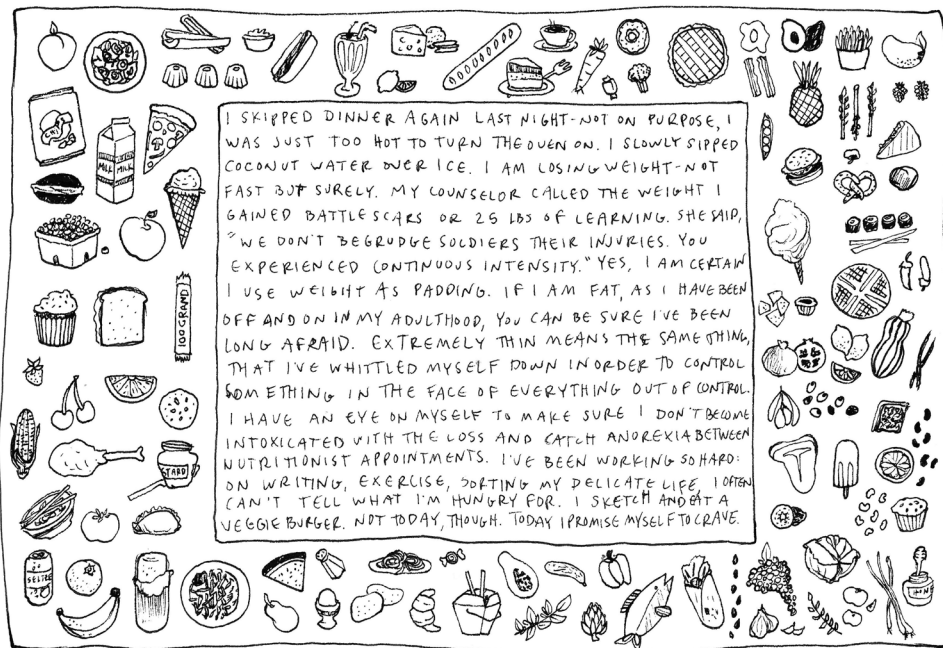 I SKIPPED DINNER AGAIN LAST NIGHT-NOT ON PURPOSE, I
WAS JUST TOO HOT TO TURN THE OVEN ON. I SLOWLY SIPPED
COCONUT WATER OVER ICE. I AM LOSING WEIGHT-NOT
FAST BUT SURELY. MY COUNSELOR CALLED THE WEIGHT I
GAINED BATTLE SCARS OR 25 LBS OF LEARNING. SHE SAID,
"WE DON'T BEGRUDGE SOLDIERS THEIR INJURIES. YOU
EXPERIENCED CONTINUOUS INTENSITY." YES, I AM CERTAIN
I USE WEIGHT AS PADDING. IF I AM FAT, AS I HAVE BEEN
OFF AND ON IN MY ADULTHOOD, YOU CAN BE SURE I'VE BEEN
LONG AFRAID. EXTREMELY THIN MEANS THE SAME THING,
THAT I'VE WHITTLED MYSELF DOWN IN ORDER TO CONTROL
SOMETHING IN THE FACE OF EVERYTHING OUT OF CONTROL.
I HAVE AN EYE ON MYSELF TO MAKE SURE I DON'T BECOME
INTOXICATED WITH THE LOSS AND CATCH ANOREXIA BETWEEN
NUTRITIONIST APPOINTMENTS. I'VE BEEN WORKING SO HARD:
ON WRITING, EXERCISE, SORTING MY DELICATE LIFE, I OFTEN
CAN'T TELL WHAT I'M HUNGRY FOR. I SKETCH AND EAT A
VEGGIE BURGER. NOT TODAY, THOUGH. TODAY I PROMISE MYSELF TO CRAVE.
MILK MILK
100 GRAND
STARD
SELTZE